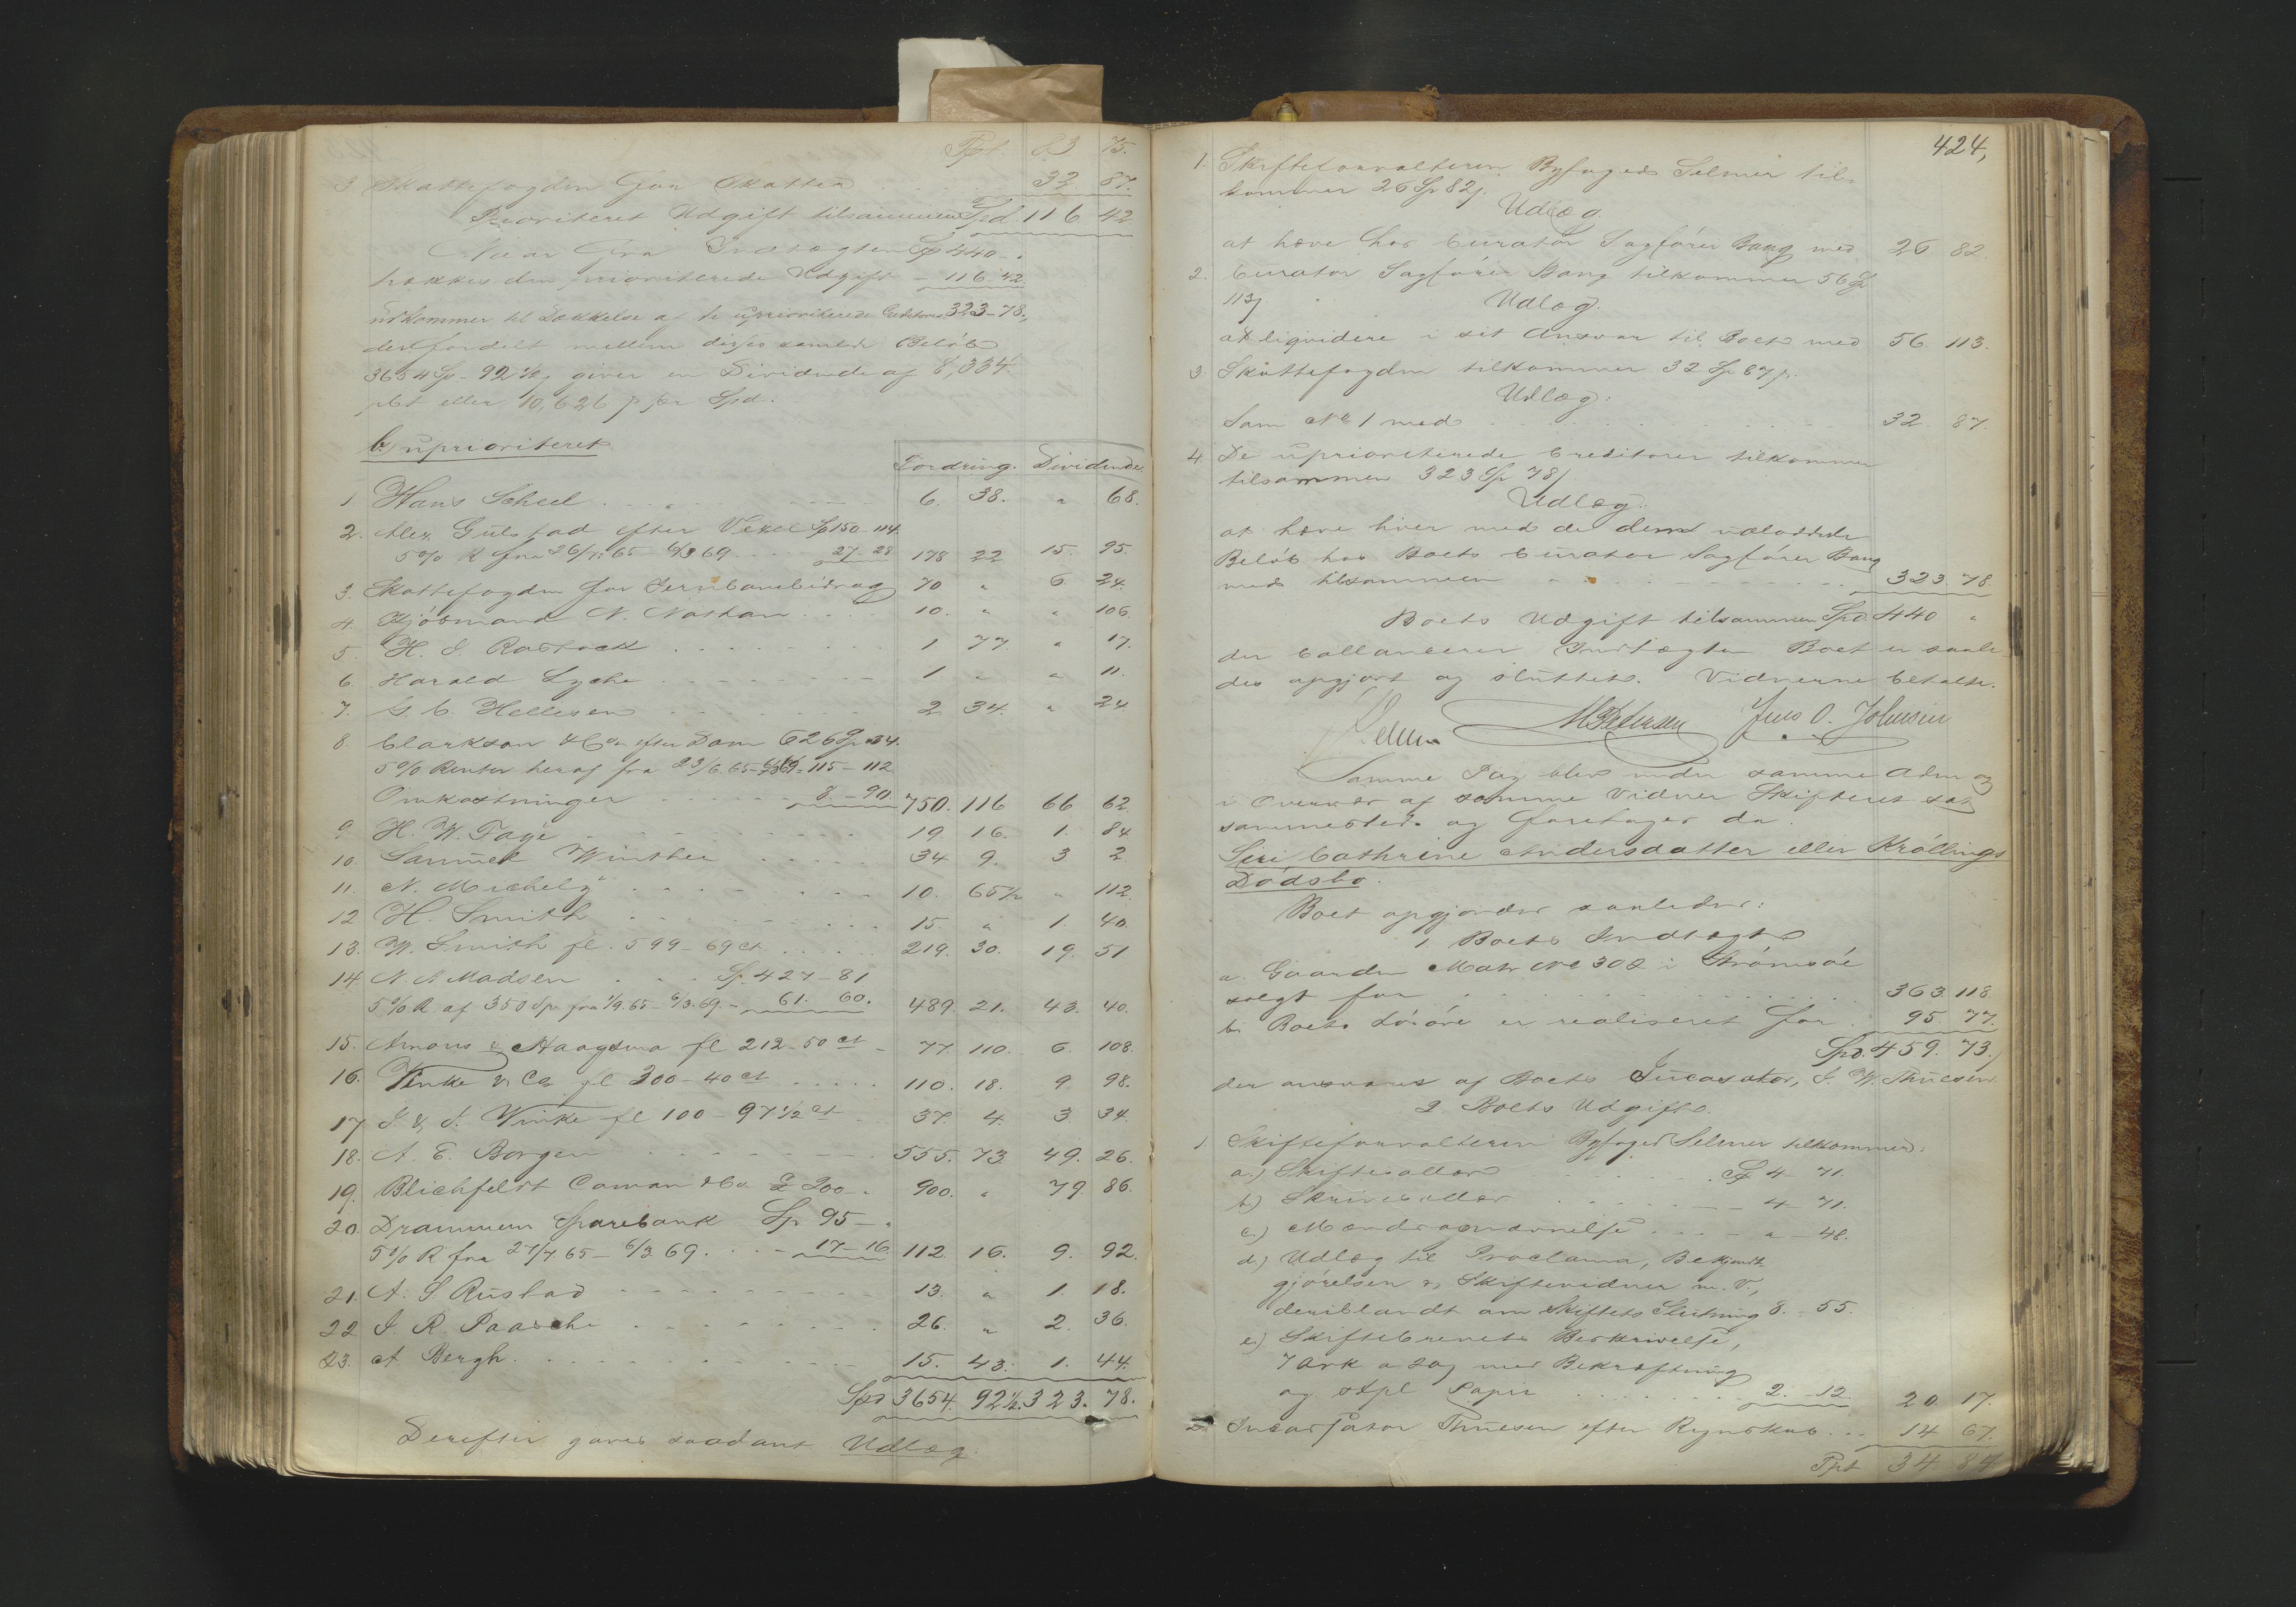 Tpt. 83 75.
3 Skattefogden for Skatter 32 87.
Prioriteret Udgift tilsammen Spd. 116 42
Naar fra Indtægten Sp 440 - "
trækkes den prioriterede Udgift - 116 42.
udkommer til Dækkelse af de uprioriterede Creditorer 323-78.,
der fordelt mellem disses samlede Beløb
3654 Sp - 92½ giver en Dividende af 8,834
pCt eller 10,626 p pr Spd.
b. uprioriteret
Fordring. Dividende
1 Hans Scheel . . . 6. 38. " 68.
2. Alex. Gulstad efter Vexel Sp 150 - 114.
5% R fra 26/7 65 - 6/3 69 . . . 27 - 28 178 22 15. 95.
3. Skattefogden for Jernbanebidrag 70 " 6. 24.
4. Kjøbmand N. Nathan . . 10. " " 106
5. H. J. Rostock . . . 1 77. " 17.
6. Harald Lyche . . . 1 " " 11.
7. G. C. Hellesen . . . 2 34. " 24.
8. Clarkson & Co efter Dom 626 Sp 34.
5% Renter heraf fra 23/6 65 - 6/3 69 - 115 - 112
Omkostninger . . . 8. - 90. 750. 116 66 62
9. H. W. Faye . . . 19. 16. 1. 84
10. Samuel Winther . . . 34 9. 3 2.
11. N. Michely . . . 10. 65½ " 112.
12 H. Smith . . . 15. " 1. 40.
13. W. Smith fl. 599 - 69 ct . . . 219. 30. 19. 51
14 N. N Madsen . . . Sp. 427 - 81
5% R af 350 Sp. fra 1/9. 65 - 6/3. 69. - 61. 60. 489. 21. 43. 40.
15. Amons & Haagsma fl 212 - 50 ct - 77. 110. 6. 108.
16. Vinke & Co fl 300 - 40 ct . . . 110. 18. 9. 98.
17 J. & S. Vinke fl 100 - 97½ ct . . . 37. 4. 3. 34.
18. A. E. Borgen . . . 555. 73. 49. 26.
19. Blichfeldt Coman & Co £ 200 - " 900. " 79. 86.
20. Drammens Sparebank Sp 95 - "
5% R fra 27/7. 65 - 6/3 69. . . - 17 - 16 112. 16. 9. 92.
21. A. S. Rustad . . . 13. " 1. 18.
22 J. R. Paasche . . . 26. " 2. 36.
23. A. Bergh. . . . 15. 43. 1. 44.
Spd 3654. 92½. 323. 78.
Derefter gaves saadant Udlæg.
424,
1. Skifteforvalteren Byfoged Selmer til-
kommer 26 Sp 82 p.
Udlæg.
at hæve hos Curator Sagfører Bang med 26 82.
2. Curator Sagfører Bang tilkommer 56 Sp
113 p Udlæg.
at liqvidere i sit Ansvar til Boet med 56. 113.
3. Skattefogden tilkommer 32 Sp 87 p.
Udlæg.
Som No 1 med . . . 32. 87.
4. De uprioriterede Creditorer tilkommer
tilsammen 323 Sp 78 p
Udlæg.
at hæve hver med de dem
Beløb hos Boets Curator Sagfører Bang
med tilsammen . . . 323. 78.
Boets Udgift tilsammen Spd. 440 "
der ballancerer Indtægten. Boet er saale-
des opgjort og sluttet. Vidnerne betalte.
Selmer M Pedersen Jens O. Johnsen
Samme Dag blev under samme Adm og
i Overvær af samme Vidner Skifteret sat
sammesteds og foretages da:
Siri Cathrine Andersdatter eller Krøllings
Dødsbo.
Boet opgjordes saaledes:
1. Boets Indtægt
a. Gaarden Matr No 302 i Strømsøe
solgt for . . . 363. 118.
b. Boets Løsøre er realiseret for . 95. 77.
Spd. 459. 73.
der ansvares af Boets Incassator, J. W. Thuesen.
2 Boets Udgift.
1. Skifteforvalteren Byfoged Selmer tilkommer:
a.) Skiftesallær . . . Sp 4 - 71.
b.) Skriversallær . . . - 4 - 71.
c.) Mændsopnævnelse . . . - " - 48.
d.) Udlæg til Proclama, Bekjendt-
gjørelsen & Skiftevidner m. V.,
deriblandt om Skiftets Slutning 8. - 55.
e.) Skiftebrevets Beskrivelse,
7 Ark a 20 p med Bekræftning
og stpl Papir . . . 2. - 12. 20. 17.
2. Incassator Thuesen efter Regnskab . . 14 67.
Tpt 34. 84